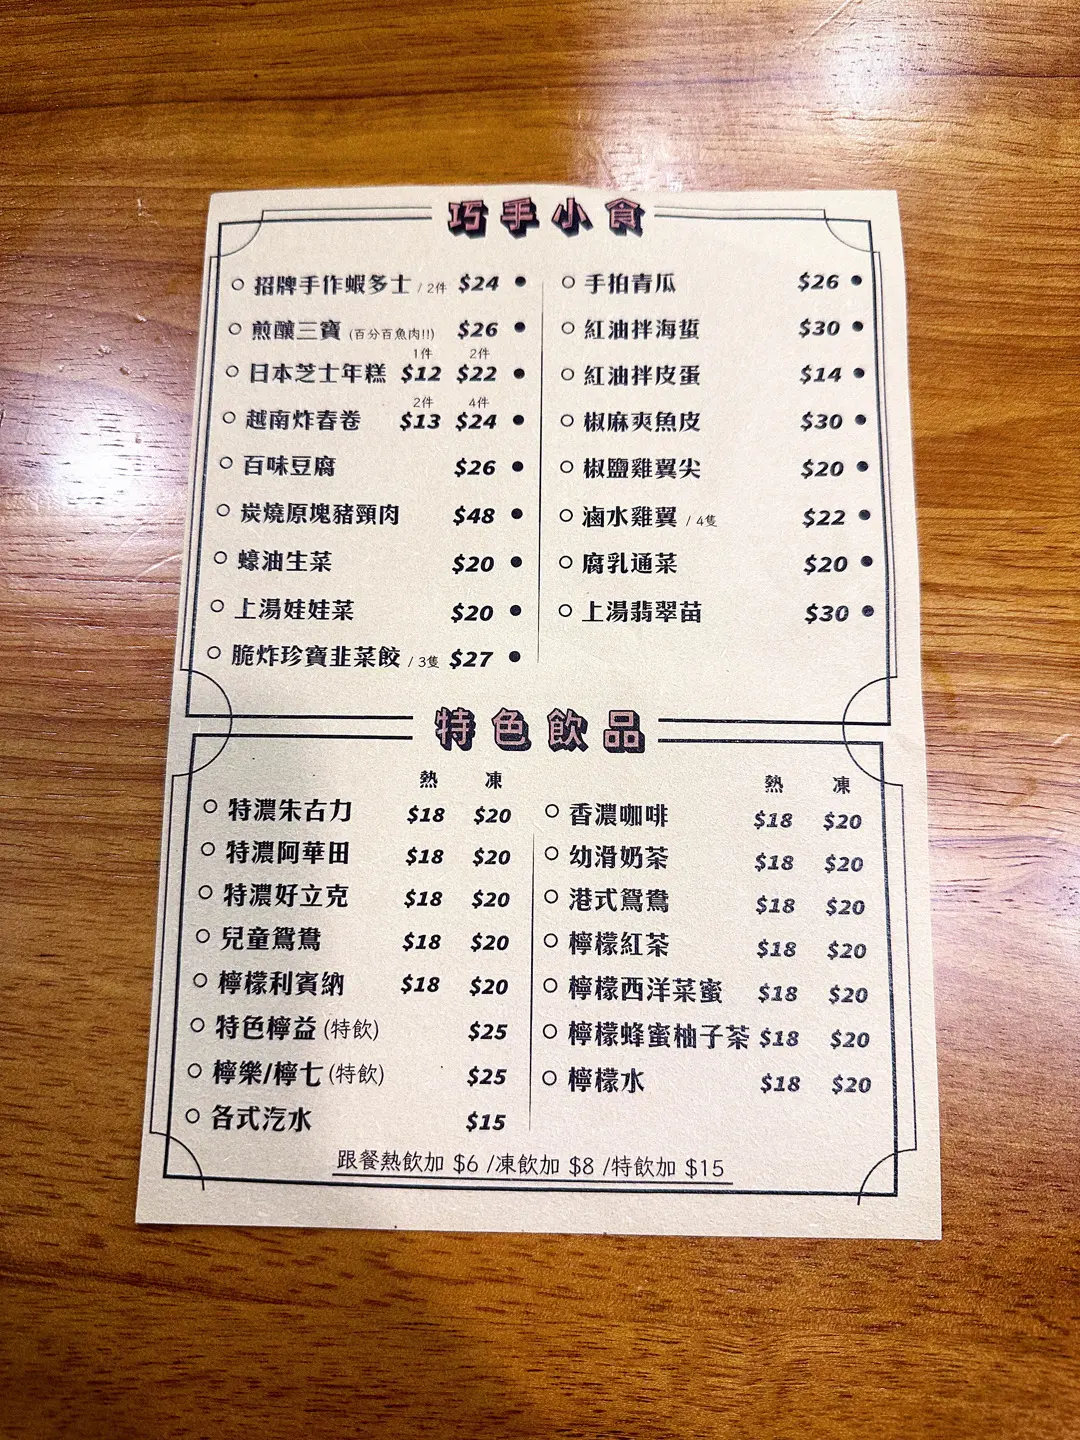 巧手小食
招牌手作蝦多士 / 2件 $24
煎釀三寶 (百分百魚肉!!) $26
1件 2件
日本芝士年糕 $12 $22
2件 4件
越南炸春卷 $13 $24
百味豆腐 $26
炭燒原塊豬頸肉 $48
蠔油生菜 $20
上湯娃娃菜 $20
脆炸珍寶韭菜餃 / 3隻 $27
手拍青瓜 $26
紅油拌海蜇 $30
紅油拌皮蛋 $14
椒麻爽魚皮 $30
椒鹽雞翼尖 $20
滷水雞翼 / 4隻 $22
腐乳通菜 $20
上湯翡翠苗 $30
特色飲品
熱 凍
特濃朱古力 $18 $20
特濃阿華田 $18 $20
特濃好立克 $18 $20
兒童鴛鴦 $18 $20
檸檬利賓納 $18 $20
特色檸益 (特飲) $25
檸樂/檸七 (特飲) $25
各式汽水 $15
熱 凍
香濃咖啡 $18 $20
幼滑奶茶 $18 $20
港式鴛鴦 $18 $20
檸檬紅茶 $18 $20
檸檬西洋菜蜜 $18 $20
檸檬蜂蜜柚子茶 $18 $20
檸檬水 $18 $20
跟餐熱飲加 $6 /凍飲加 $8 /特飲加 $15